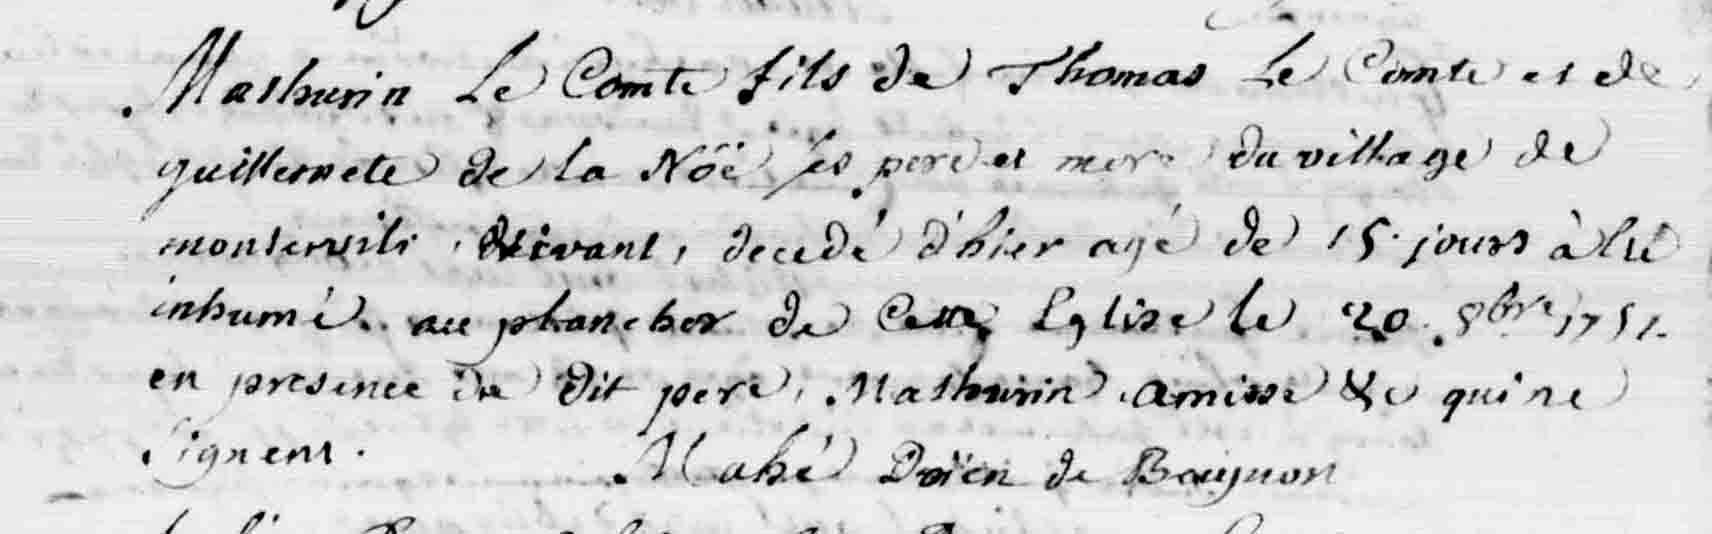 Mathurin Le Comte fils de Thomas Le Comte et de
guillemete de la Nöë ses pere et mere du village de
decedé d'hier agé de 15. jours à eté
inhumé au plancher de Cette Eglise le 20. 8bre 1751.
en presence du dit pere, Mathurin amisse &c qui ne
signent. Mahé Doïen de Beignon